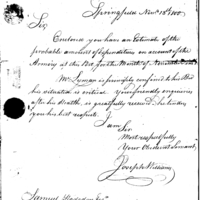 Springfield Novr 18th 1800.
Sir
Enclosed you have an Estimate of the
probable amount of Expenditures on account of the
Armory at this
Mr Lyman is principally confined to his Bed
his situation is critical. Your friendly enquiries
after his health, is gratefully received, he tenders
you his best respects.
I am
Sir
Most respectfully
Your Obedient Servant,
Joseph Williams
Samuel